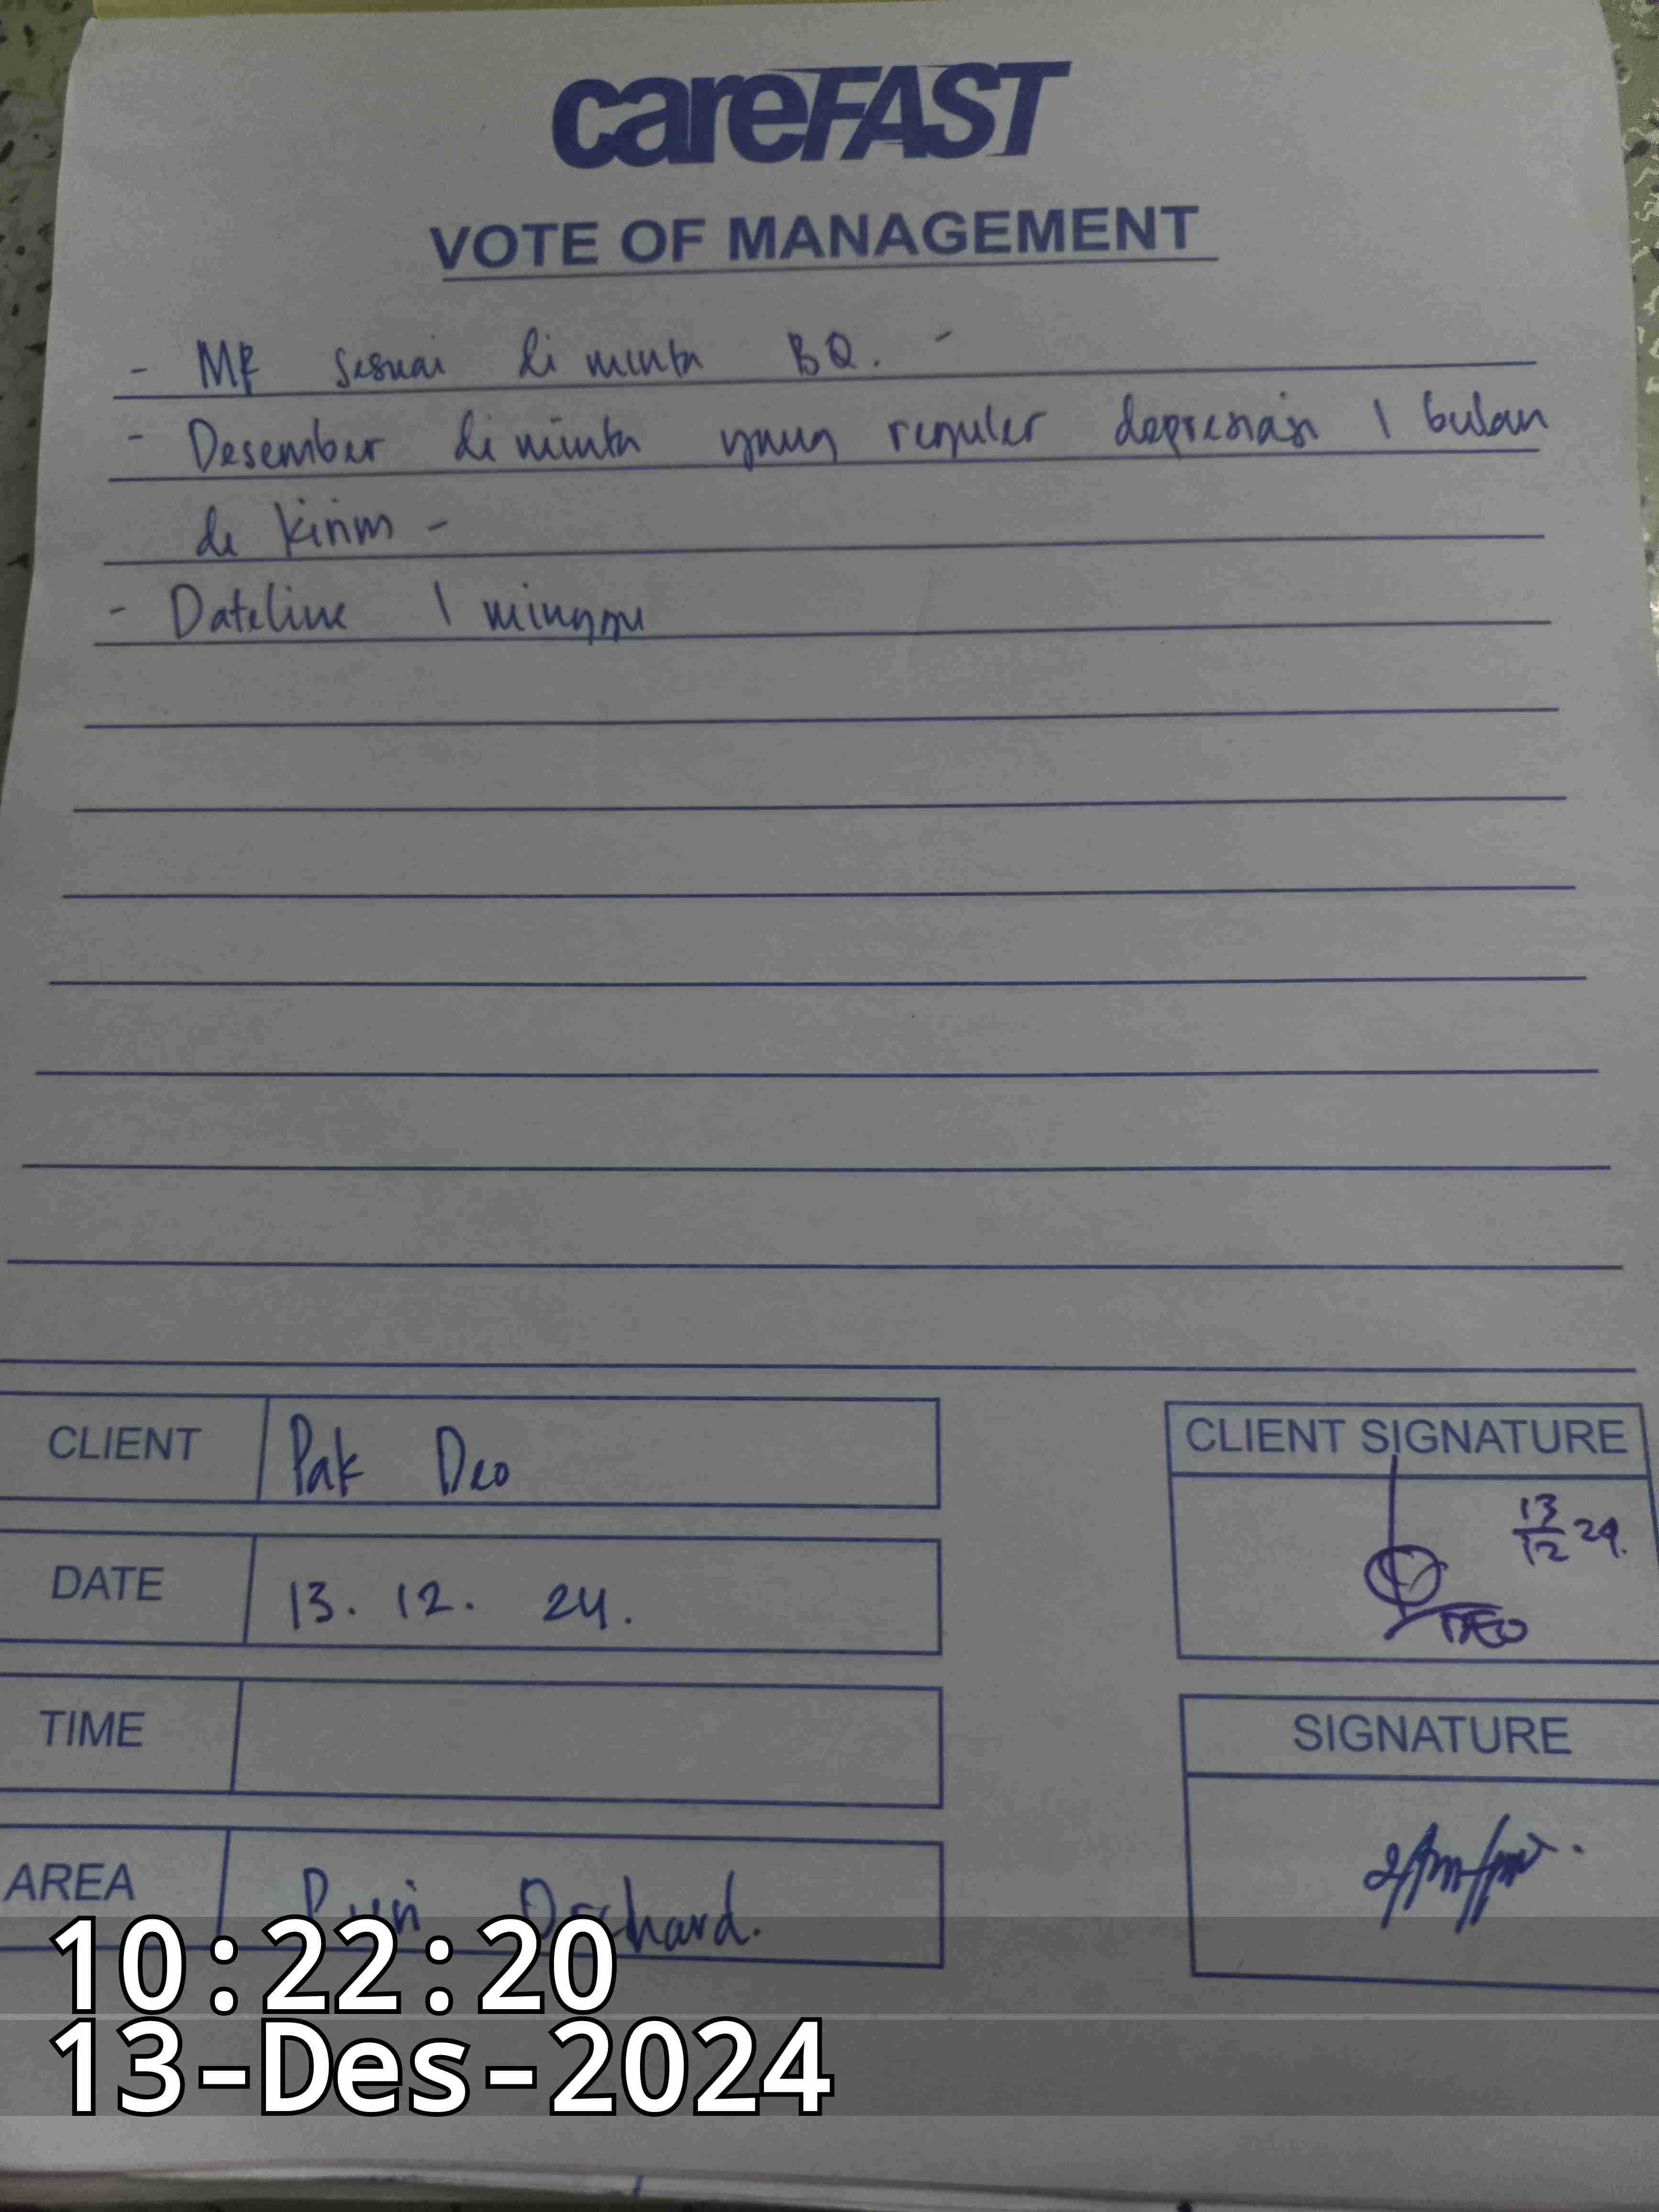 careFAST
VOTE OF MANAGEMENT
- MR sesuai di minta BQ. -
- Desember di minta yang reguler depresiasi 1 bulan
di kirim -
- Dateline 1 minggu
CLIENT Pak Deo
DATE 13. 12. 24.
TIME
AREA Puri Orchard.
CLIENT SIGNATURE
13/12 24.
DEO
SIGNATURE
10:22:20
13-Des-2024